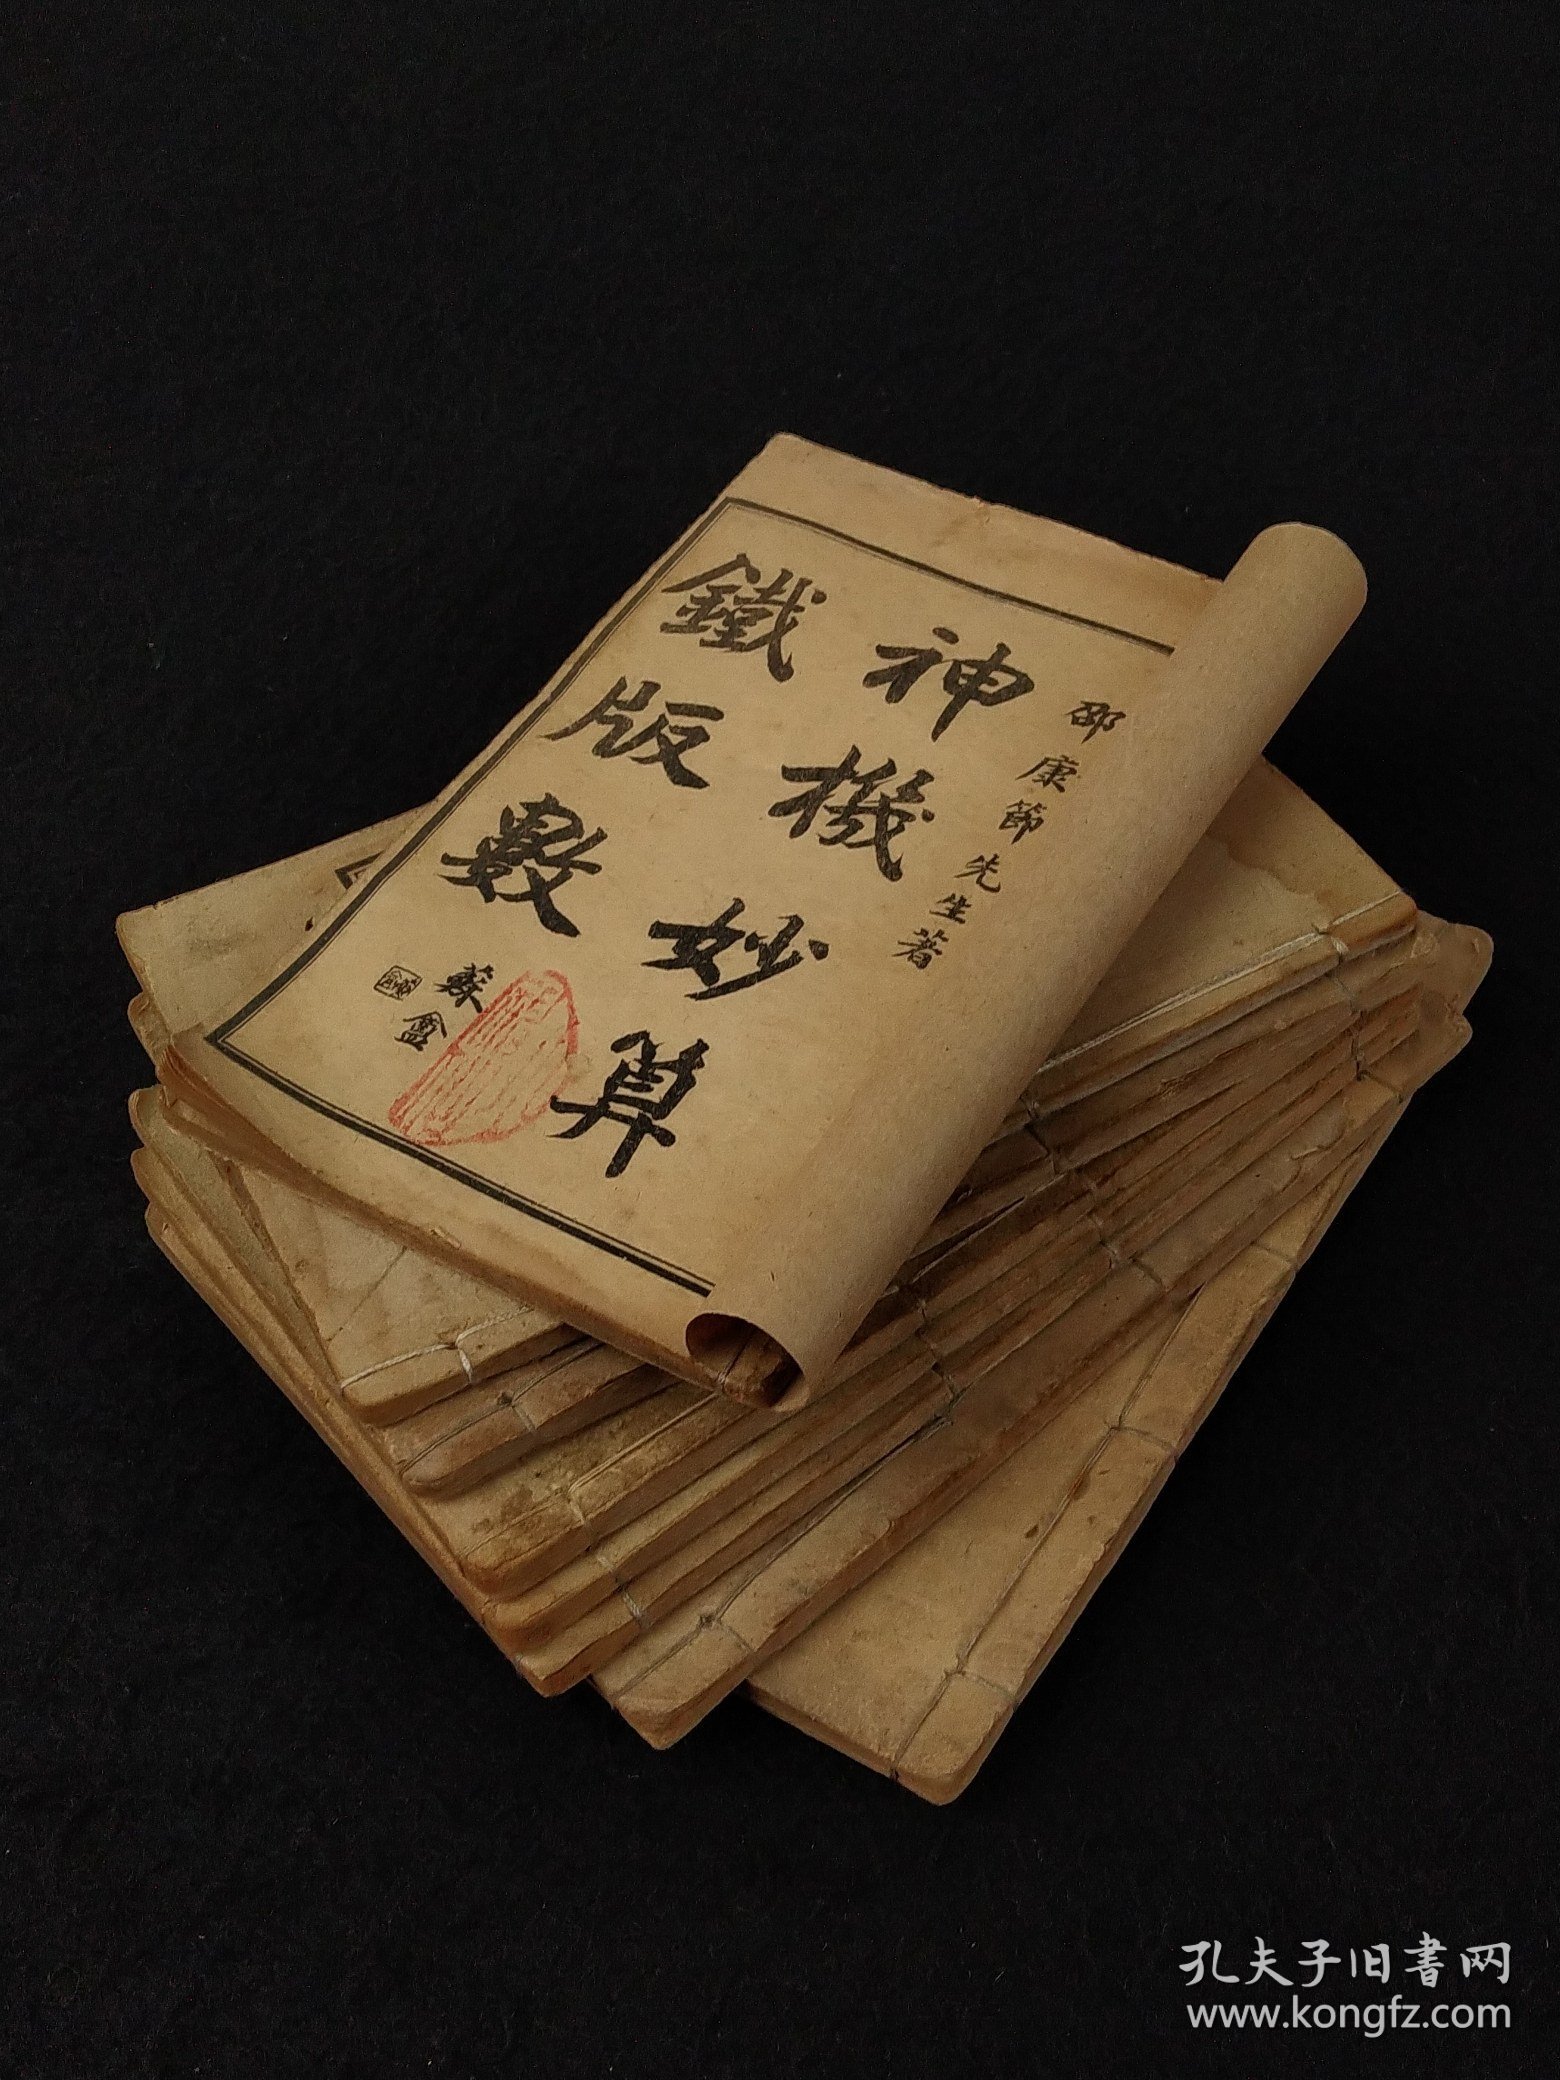 邵康節先生著
神機妙算
鐵版數
蘇盦
孔夫子旧書网
www.kongfz.com